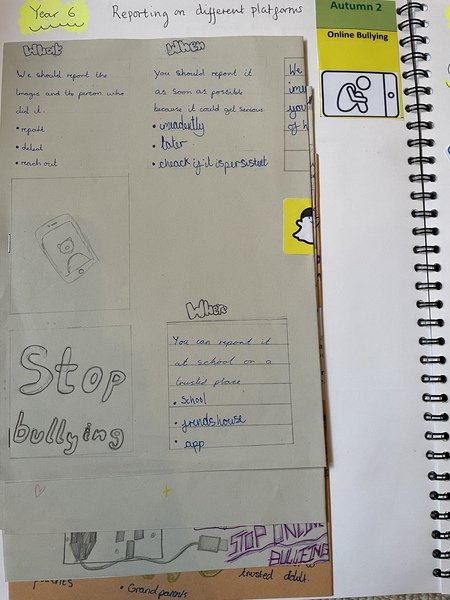 Year 6
Reporting on different platforms
Autumn 2
Online Bullying
What
We should report the
images and the person who
did it.
• report
• delect
• reach out
When
You should report it
as soon as possible
because it could get serious
• imeadently
• later
• cheack if it is persistent
We
Stop
bullying
Where
You can report it
at school or a
trusted place
• School
• friends house
• app
STOP ONLINE
BULLYING
• Grandparents
trusted adult.